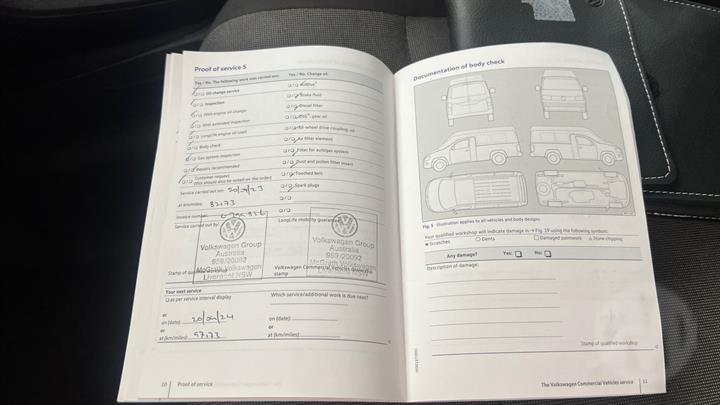 Proof of service 5
Yes / No. The following work was carried out:
Oil change service
Inspection
With engine oil change
With extended inspection
LongLife engine oil used
Body check
Gas system inspection
Repairs recommended
Customer request
(this should also be noted on the order)
Service carried out on:
at km/miles: 82173
Invoice number:
Service carried out by:
Volkswagen Group
Australia
959/20092
McGrath Volkswagen
Liverpool NSW
Stamp of qualified workshop
Yes / No. Change of:
Brake fluid
Diesel filter
gear oil
All-wheel drive coupling oil
Air filter element
Filter for autogas system
Dust and pollen filter insert
Toothed belt
Spark plugs
LongLife mobility guarantee
Volkswagen Group
Australia
959/20092
McGrath Volkswagen
Liverpool NSW
Volkswagen Commercial Vehicles dealership
stamp
Your next service
as per service interval display
or
on (date):
or
at (km/miles): 97173
Which service/additional work is due next?
on (date):
or
at (km/miles):
10 Proof of service
Documentation of body check
Fig. 5 Illustration applies to all vehicles and body designs
Your qualified workshop will indicate damage in → Fig. 19 using the following symbols:
Scratches Dents Damaged paintwork Stone chipping
Any damage? Yes: No:
Description of damage:
Stamp of qualified workshop
The Volkswagen Commercial Vehicles service 11